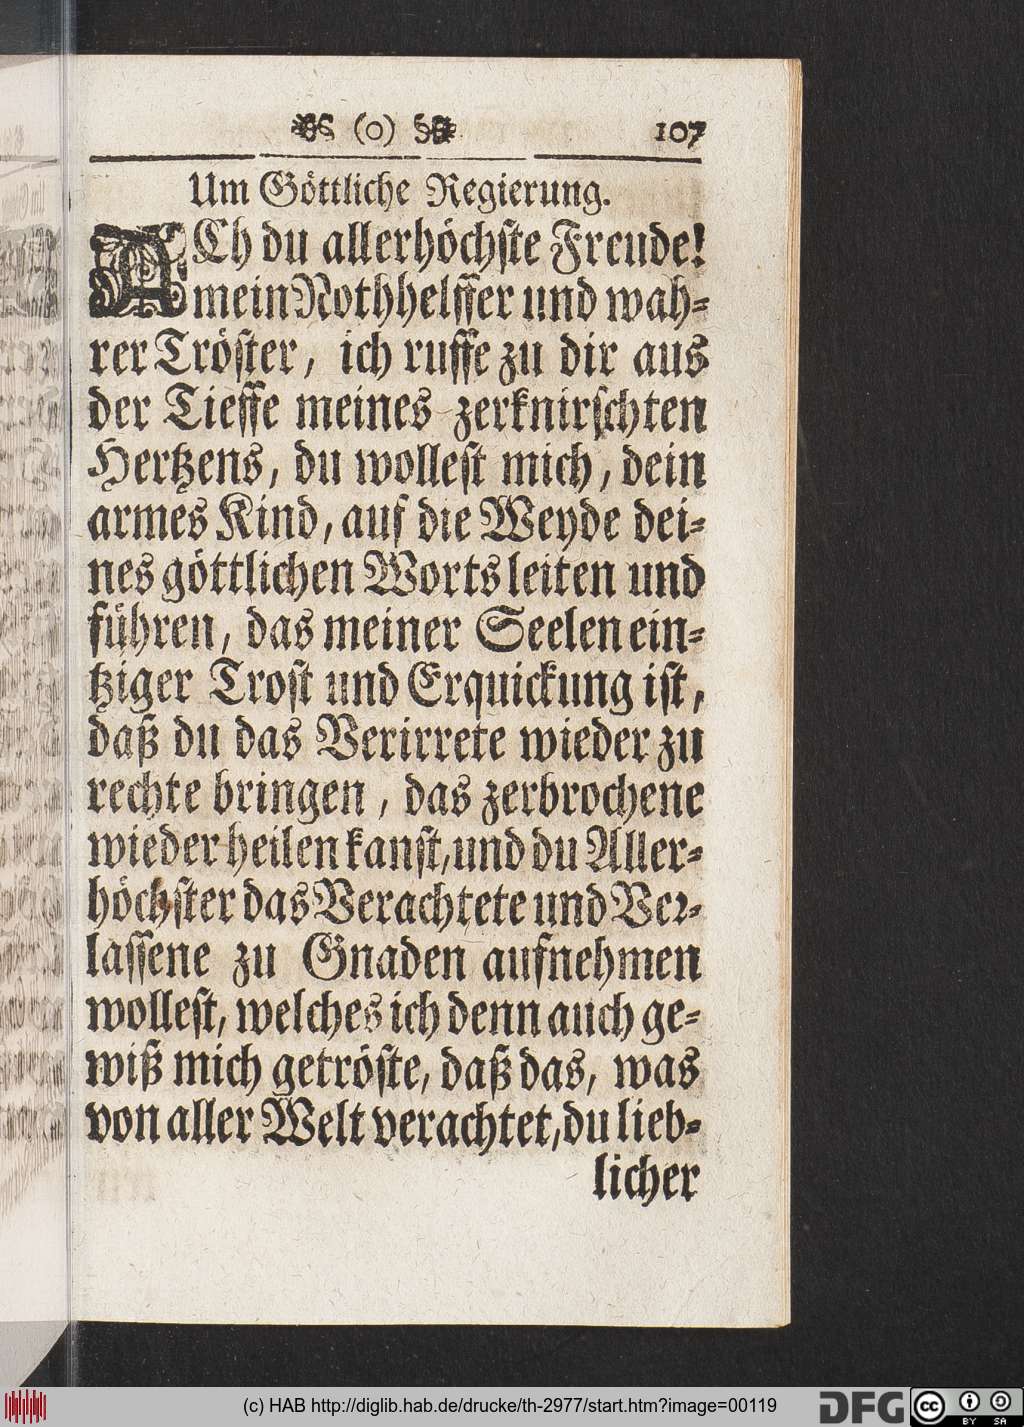 (o) 107
Um Göttliche Regierung.
ACh du allerhöchste Freude!
mein Nothhelffer und wah-
rer Tröster, ich ruffe zu dir aus
der Tieffe meines zerknirschten
Hertzens, du wollest mich, dein
armes Kind, auf die Weyde dei-
nes göttlichen Worts leiten und
führen, das meiner Seelen ein-
tziger Trost und Erquickung ist,
daß du das Verirrete wieder zu
rechte bringen, das zerbrochene
wieder heilen kanst, und du Aller-
höchster das Verachtete und Ver-
lassene zu Gnaden aufnehmen
wollest, welches ich denn auch ge-
wiß mich getröste, daß das, was
von aller Welt verachtet, du lieb-
licher
(c) HAB http://diglib.hab.de/drucke/th-2977/start.htm?image=00119
DFG
cc BY SA